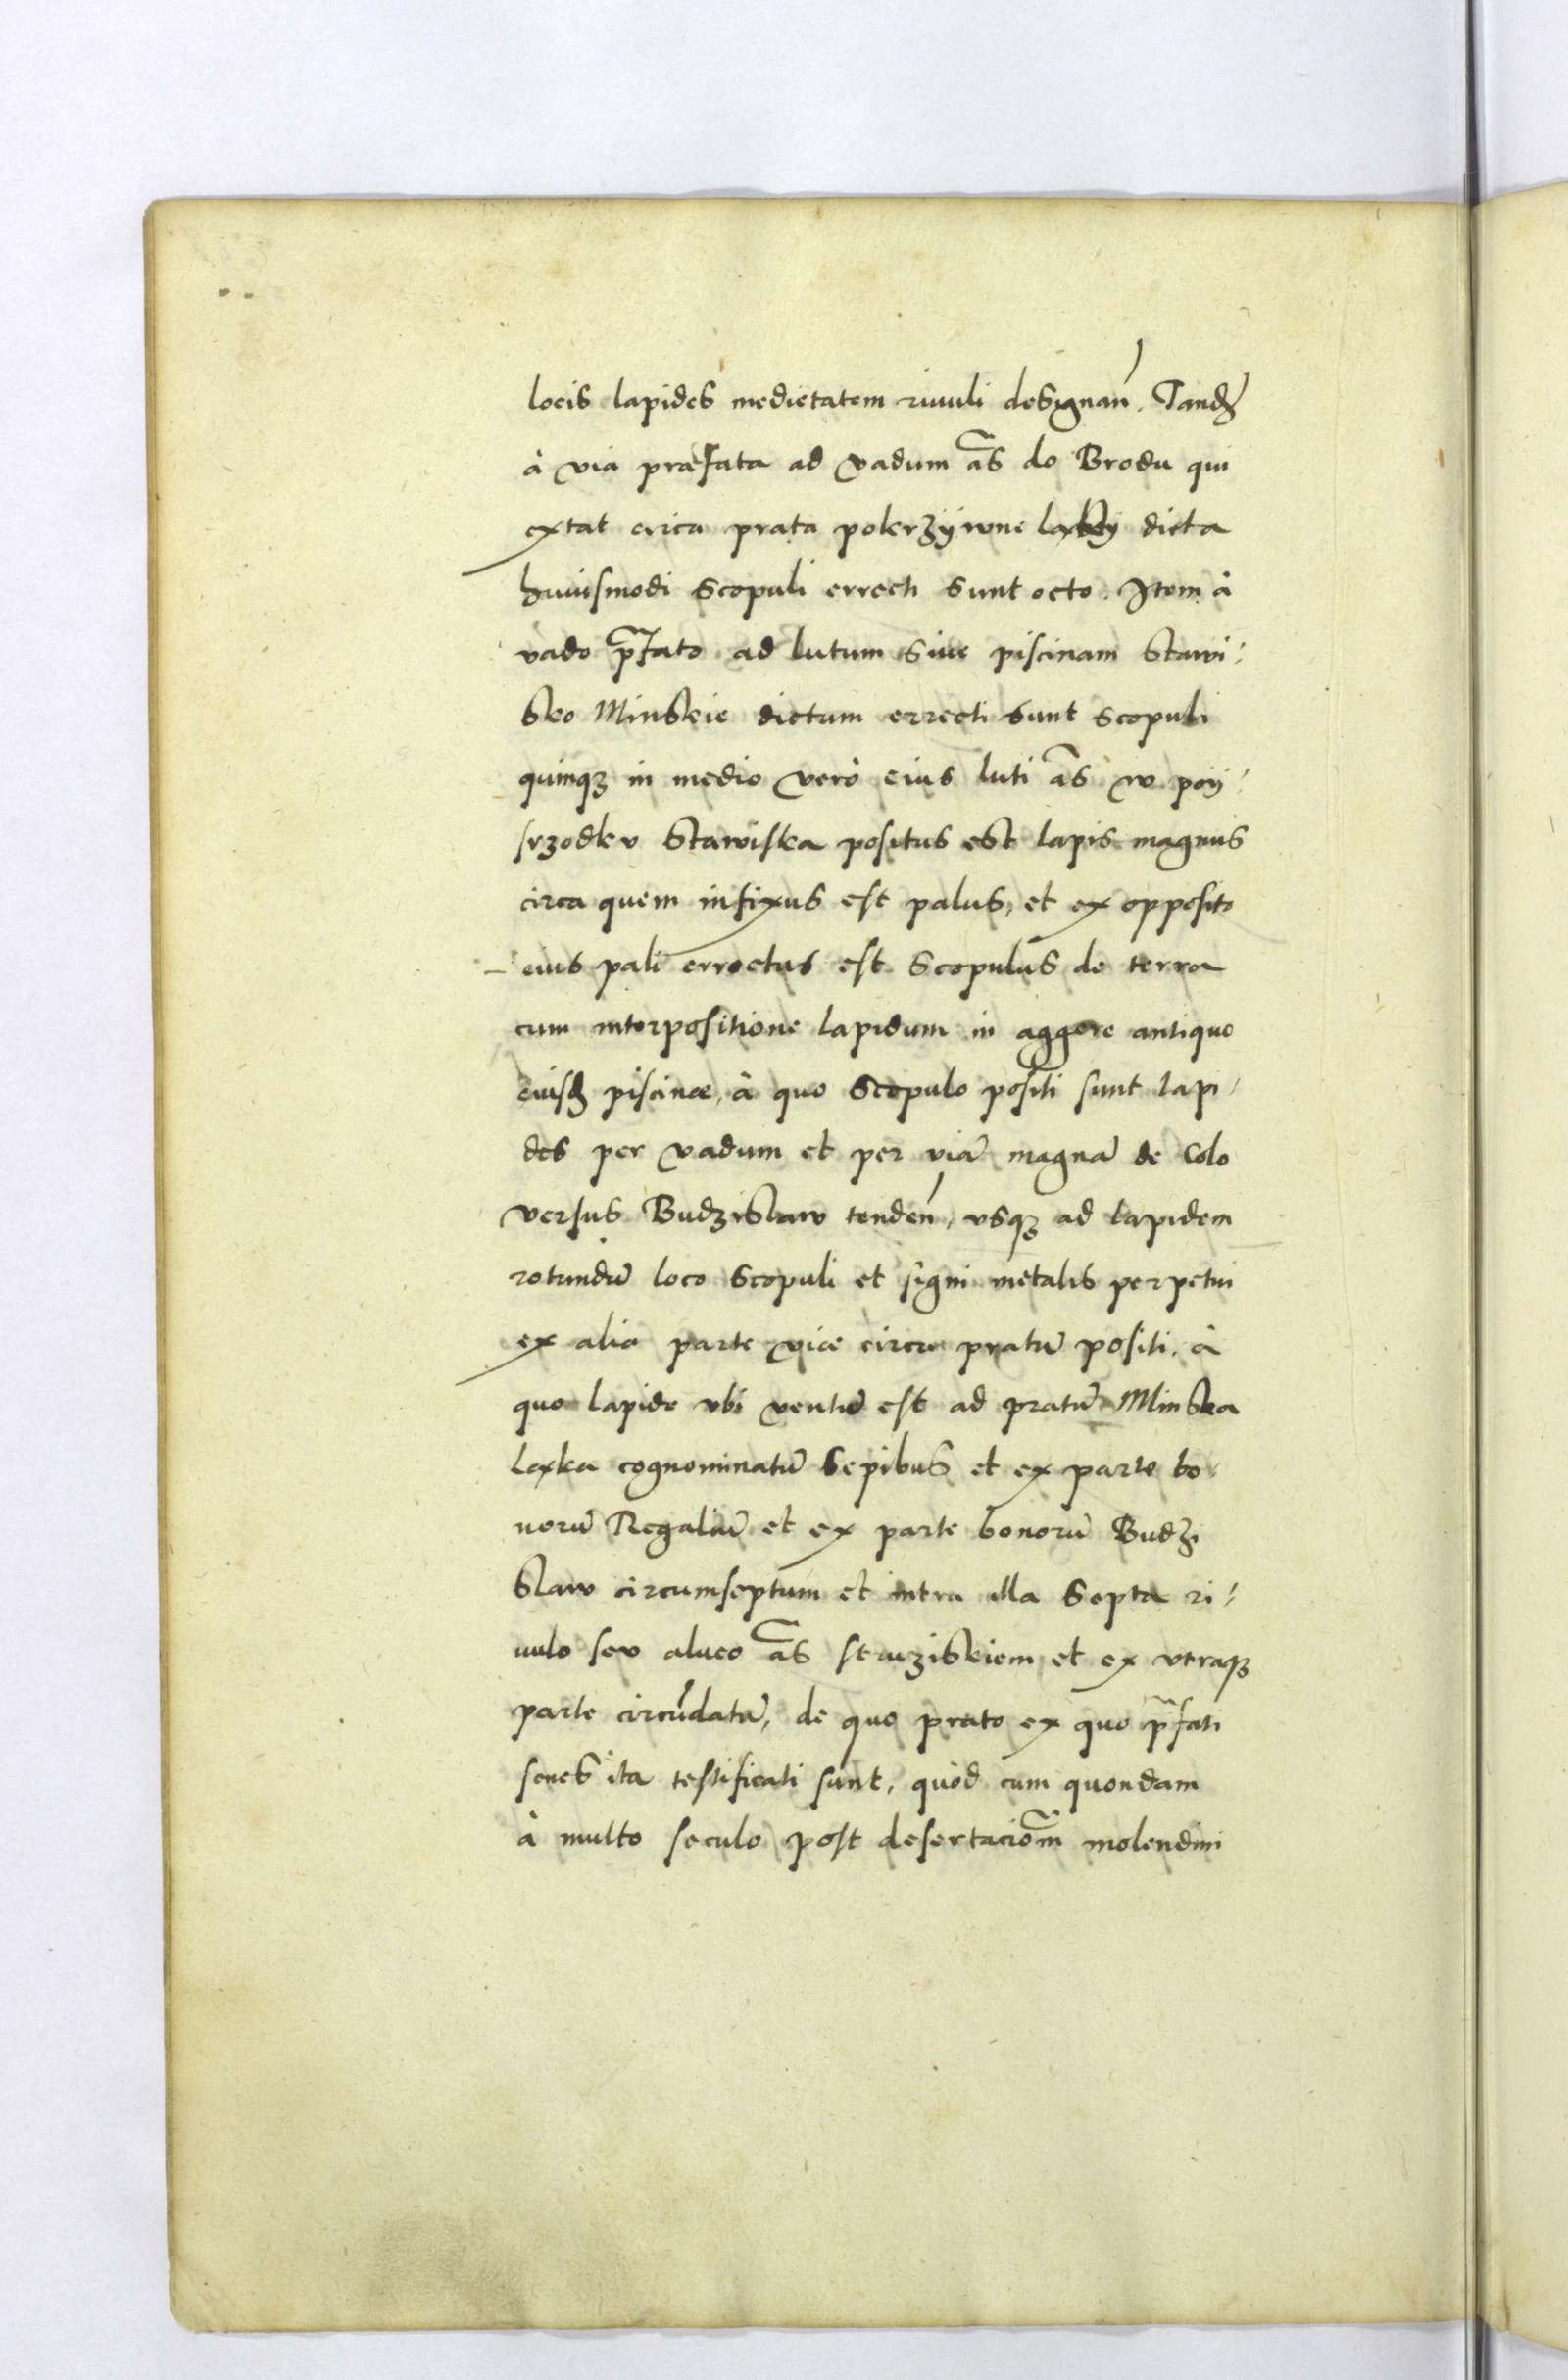 locis lapides medietatem riuuli designan̄. Tandē
à via præfata ad vadum ās do Brodu qui
extat circa prata pokrzÿwne laxky dicta
huiusmodi scopuli errecti sunt octo. Item à
vado p̄fato ad lutum siue piscinam Stawi⸗
sko Minskie dictum errecti sunt scopuli
quinqꝫ in medio verò eius luti ās w poÿ⸗
srzodkv Stawiska positus est lapis magnus
circa quem infixus est palus, et ex opposito
eius pali errectus est scopulus de terra
cum interpositione lapidum in aggere antiquo
eiusd piscinæ, à quo scopulo positi sunt lapi⸗
des per vadum et per viā magnā de Colo
versus Budzislaw tenden̄, vsqꝫ ad lapidem
rotundū loco scopuli et signi metalis perpetui
ex alia parte viæ circa pratū positi. à
quo lapide vbi ventū est ad pratū Minska
laxka cognominatū sepibus et ex parte bo⸗
norū Regaliū et ex parte bonorū Budzi
slaw circumseptum et intra illa septa ri⸗
uulo sev alueo ās struziskiem et ex vtraqꝫ
parte circūdatū, de quo prato ex quo p̄fati
senes ita testificati sunt, quòd cum quondam
à multo seculo post desertacioēm molendini